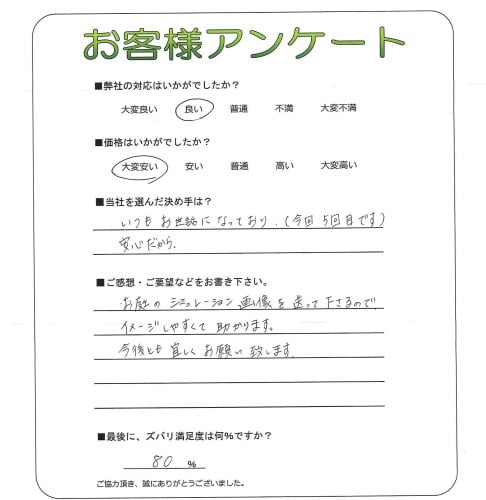 お客様アンケート
■弊社の対応はいかがでしたか？
大変良い 良い 普通 不満 大変不満
■価格はいかがでしたか？
大変安い 安い 普通 高い 大変高い
■当社を選んだ決め手は？
いつもお世話になっており、(今回5回目です)
安心だから。
■ご感想・ご要望などをお書き下さい。
お庭のシミュレーション画像を送って下さるので
イメージしやすくて助かります。
今後とも宜しくお願い致します。
■最後に、ズバリ満足度は何％ですか？
80 ％
ご協力頂き、誠にありがとうございました。